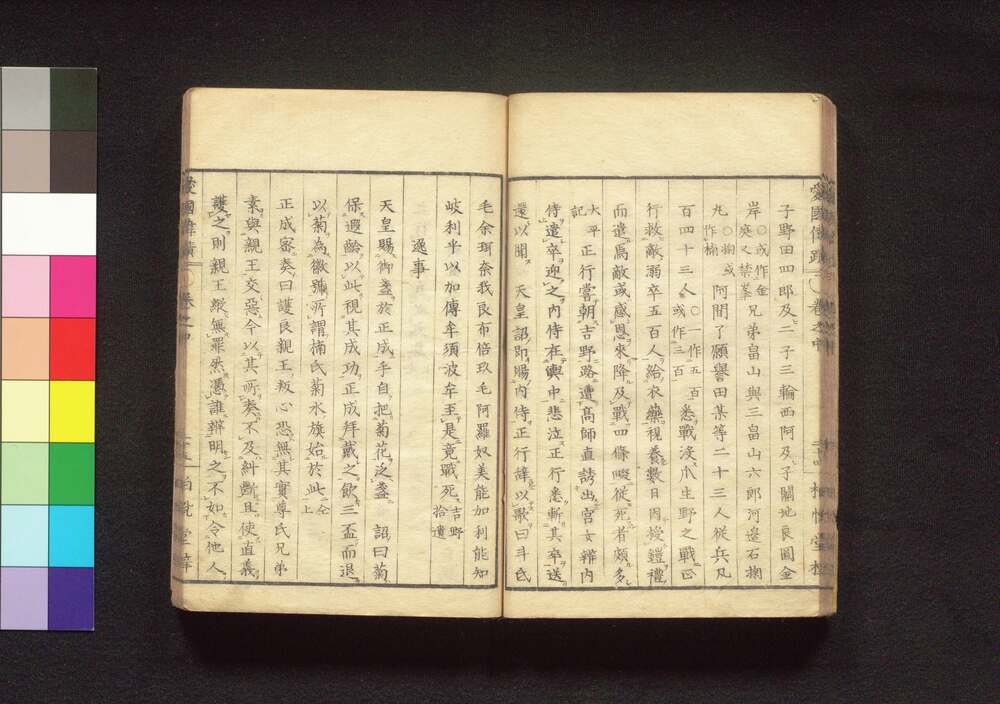 子野田四郎及二子三輪西阿及子關地良圓金
岸〇或作金奕又禁峯兄弟畠山與三畠山六郎河邊石掬
丸〇掬或作楠阿間了願譽田某等二十三人從兵凡
百四十三人〇一作五百或作三百悉戰沒爪生野之戰正
行救敵溺卒五百人給衣藥視養數日因授鎧禮
而遣焉敵或感恩來降及戰四條畷從死者頗多
太平記正行嘗朝吉野路遭高師直誘出宮女辨内
侍遣卒迎之内侍在輿中悲泣正行悉斬其卒送
還以聞 天皇詔即賜内侍正行辭以歌曰斗氐
毛余珥奈我良布倍玖毛阿羅奴美能加利能知
岐利乎以加傳牟須波牟王是竟戰死吉野拾遺
逸事
天皇賜御盞於正成手自把菊花泛盞 詔曰菊
保遐齡以此視其成功正成拜戴之飲三盃而退
以菊為徽號所謂楠氏菊水旗始於此仝上
正成密奏曰護良親王叛心恐無其實尊氏兄弟
素與親王交惡今以其所奏不及糾斷且使直義
護之則親王縱無罪然憑誰辨明之不如令他人